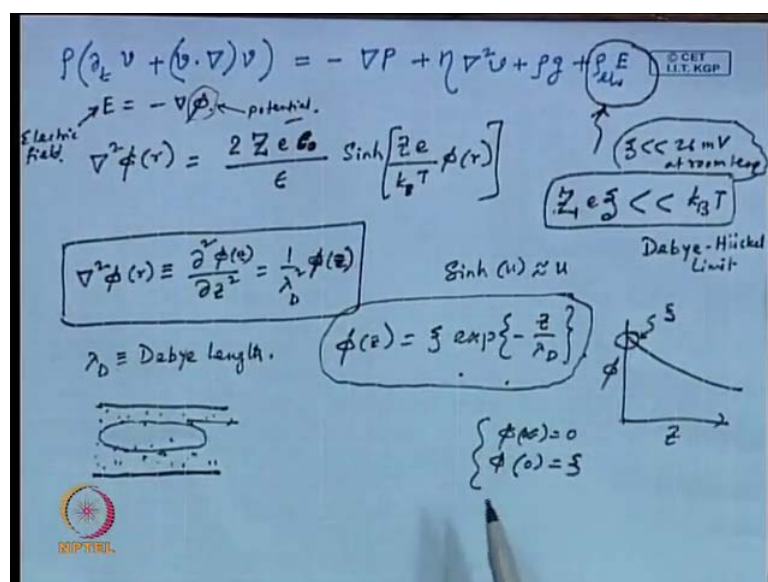 ρ(∂ₜ v + (v·∇)v) = -∇P + η∇²v + ρg + ρₑₗₑ E
© CET
I.I.T. KGP
E = -∇φ ← potential.
Electric
field.
∇²φ(r) = 2 Z e c₀ / ε Sinh[Ze / k_B T φ(r)]
ξ << 26 mV
at room temp
Z e ξ << k_B T
Debye-Hückel
Limit
∇²φ(r) ≡ ∂²φ(z)/∂z² = 1/λ_D² φ(z)
Sinh(u) ≈ u
λ_D ≡ Debye Length.
φ(z) = ξ exp{-z/λ_D}
ξ
φ
z
φ(∞)=0
φ(0)=ξ
NPTEL